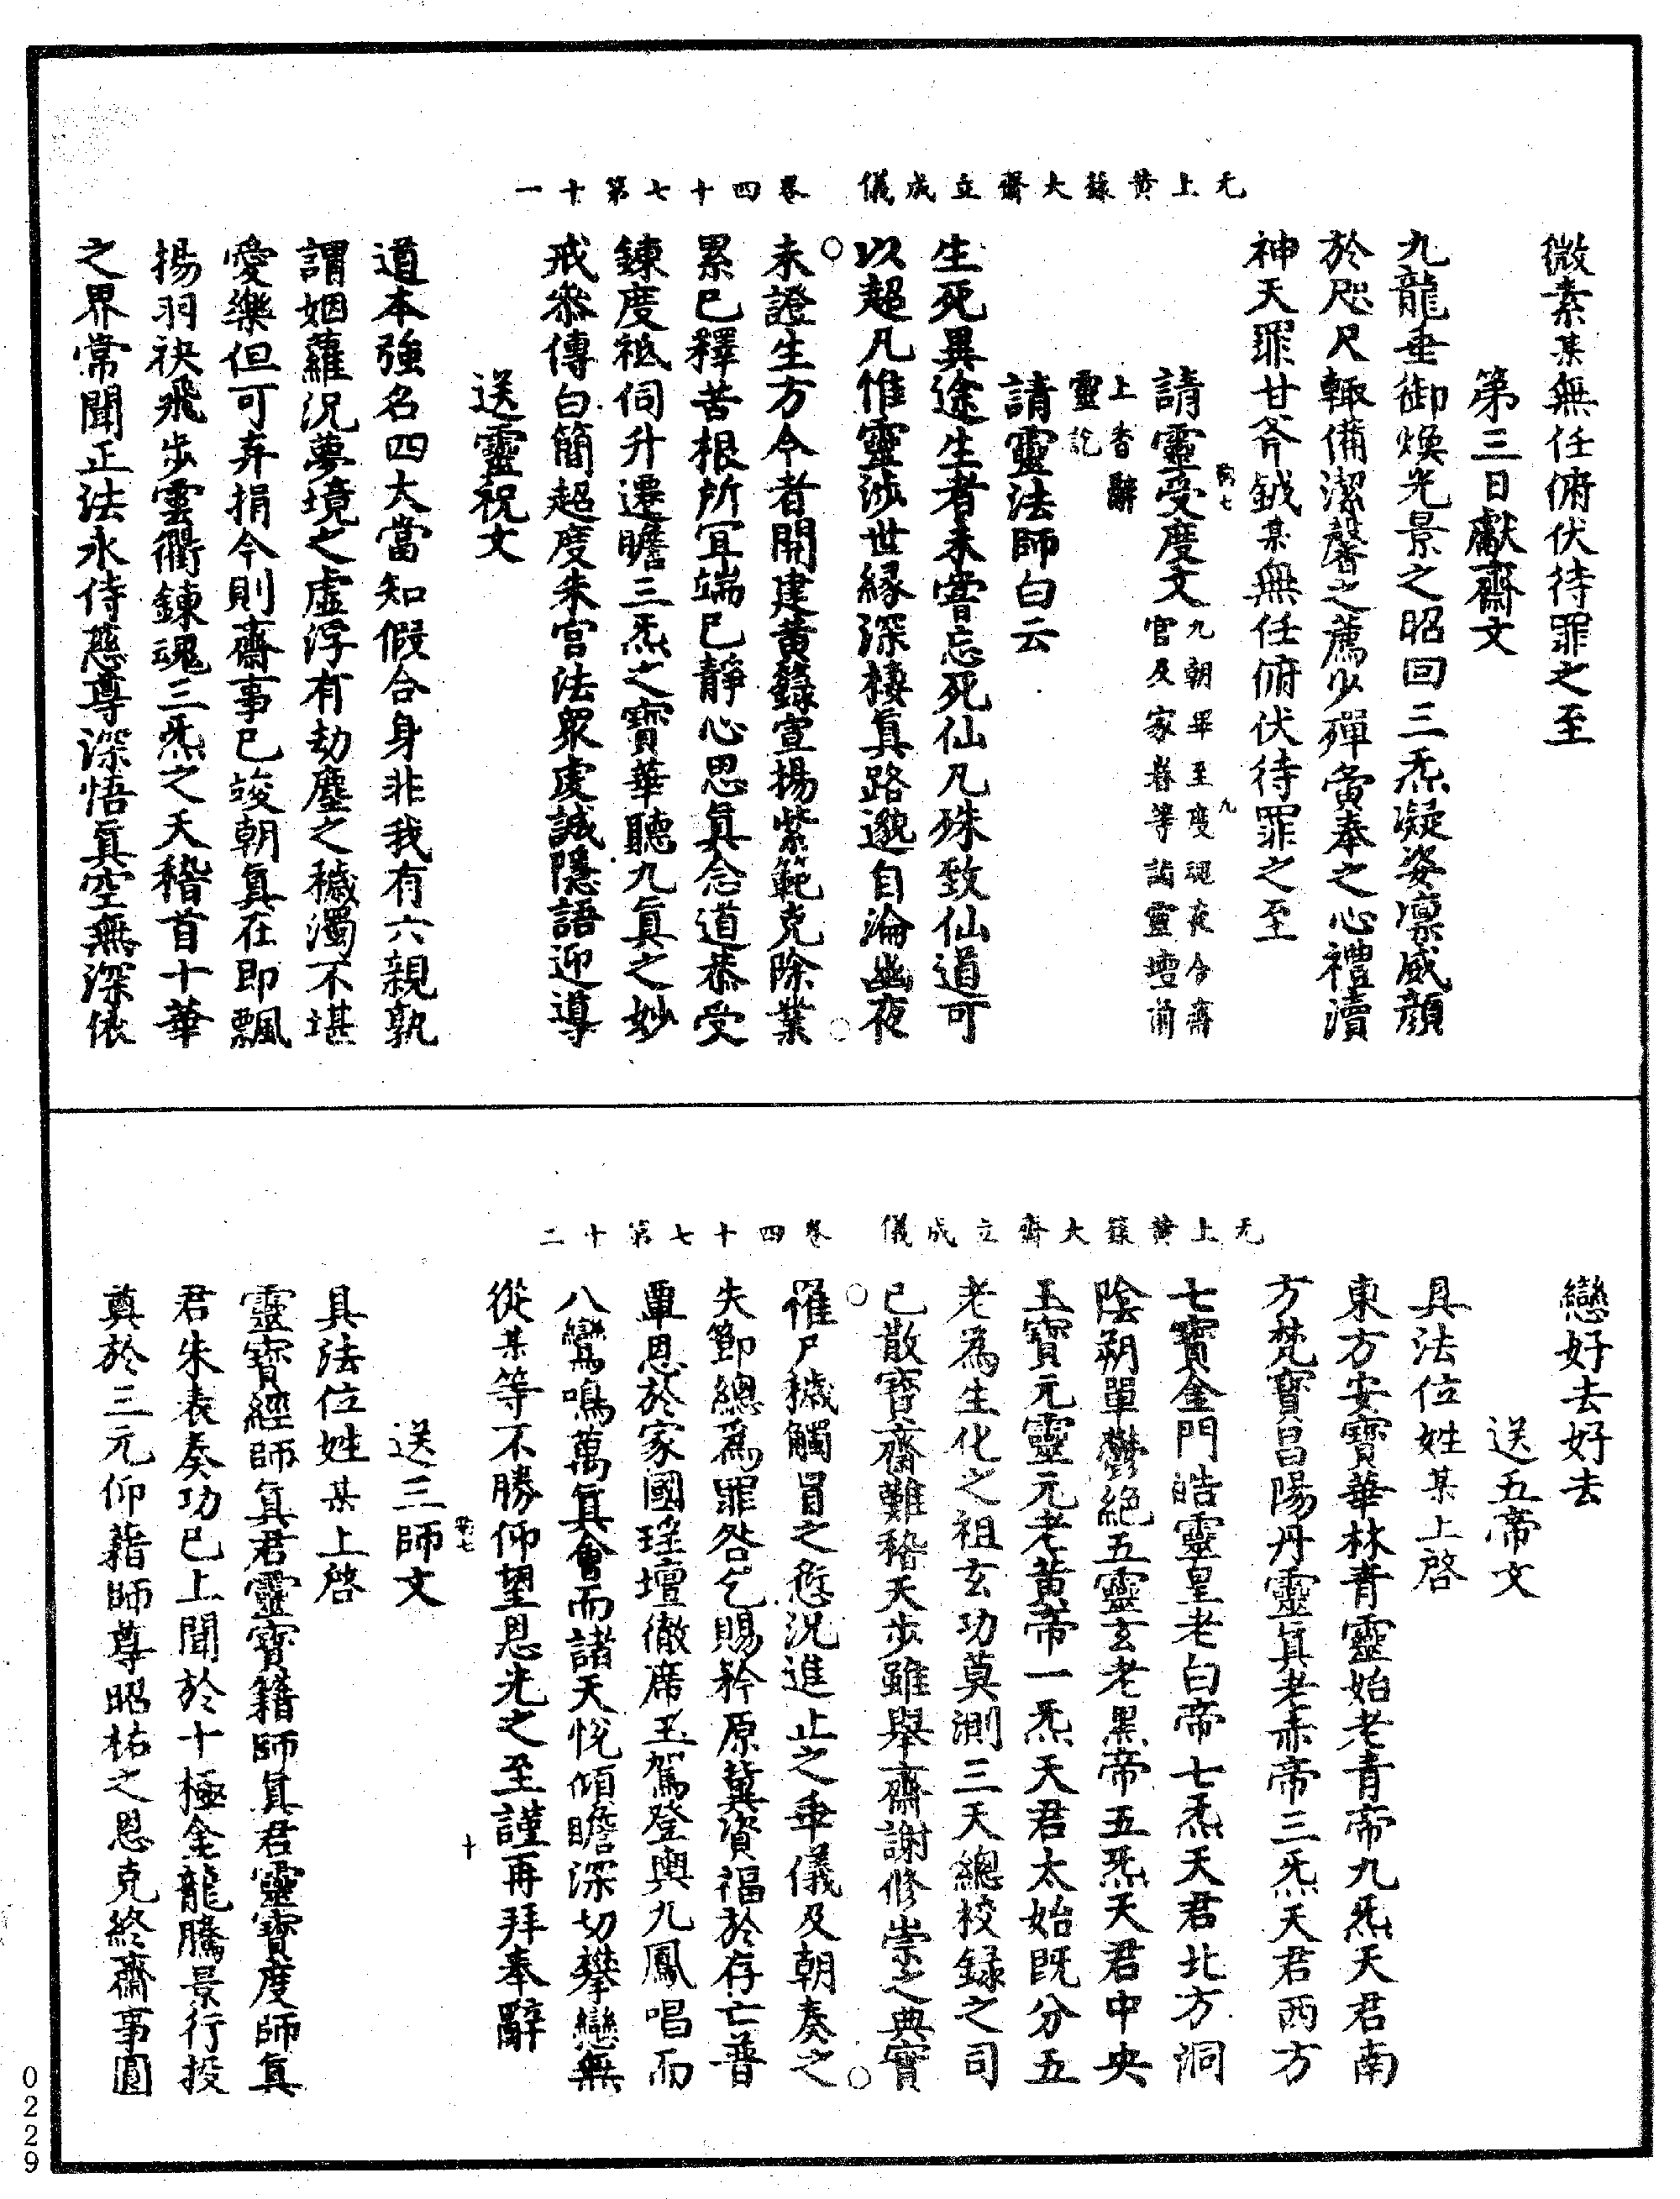 无上黄籙大齋立成儀　卷四十七第十一
微素某無任俯伏待罪之至
第三日獻齋文
九龍垂御煥光景之昭回三炁凝姿凛威顔
於咫尺輙備潔馨之薦少殫夤奉之心禮瀆
神天罪甘斧鉞某無任俯伏待罪之至
請靈受度文九朝畢至度魂夜令齋
官及家眷等詣靈壇前
上香辭
靈訖
請靈法師白云
生死異途生者未甞忘死仙凡殊致仙道可
以超凡惟靈涉世縁深棲真路邈自淪幽夜
未證生方今者開建黄籙宣揚紫範克除業
累已釋苦根所冝端已靜心思眞念道恭受
鍊度祇伺升遷瞻三炁之寶華聽九眞之妙
戒叅傳白簡超度朱宫法眾虔誠隱語迎導
送靈祝文
道本強名四大當知假合身非我有六親孰
謂姻蘿況夢境之虛浮有劫塵之穢濁不堪
愛樂但可弃捐今則齋事已竣朝眞在即飄
揚羽袂飛步雲衢鍊魂三炁之天稽首十華
之界常聞正法永侍慈尊深悟眞空無深依
无上黄籙大齋立成儀　卷四十七第十二
戀好去好去
送五帝文
具法位姓某上啓
東方安寶華林青靈始老青帝九炁天君南
方梵寶昌陽丹靈眞老赤帝三炁天君西方
七寶金門皓靈皇老白帝七炁天君北方洞
陰朔單鬱絕五靈玄老黑帝五炁天君中央
玉寶元靈元老黄帝一炁天君太始既分五
老為生化之祖玄功莫測三天總校録之司
已散寶齋難稽天步雖舉齋謝修崇之典實
罹尸穢觸冒之愆況進止之乖儀及朝奏之
失節總爲罪咎乞賜矜原冀資福於存亡普
覃恩於家國瑤壇徹席玉駕登輿九鳳唱而
八鸞鳴萬眞會而諸天悅傾瞻深切攀戀無
從某等不勝仰望恩光之至謹再拜奉辭
送三師文
具法位姓某上啓
靈寶經師眞君靈寶籍師眞君靈寶度師眞
君朱表奏功已上聞於十極金龍騰景行投
奠於三元仰藉師尊昭祐之恩克終齋事圓
十
0229